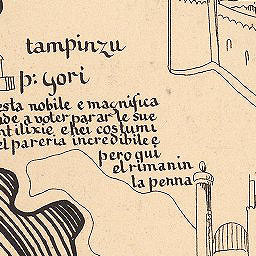 tampinzu
p: gori
esta nobile e magnifica
de a voter parar le sue
ntilixie e hei costumi
el pareria incredibile e
pero qui
el rimanin
la penna